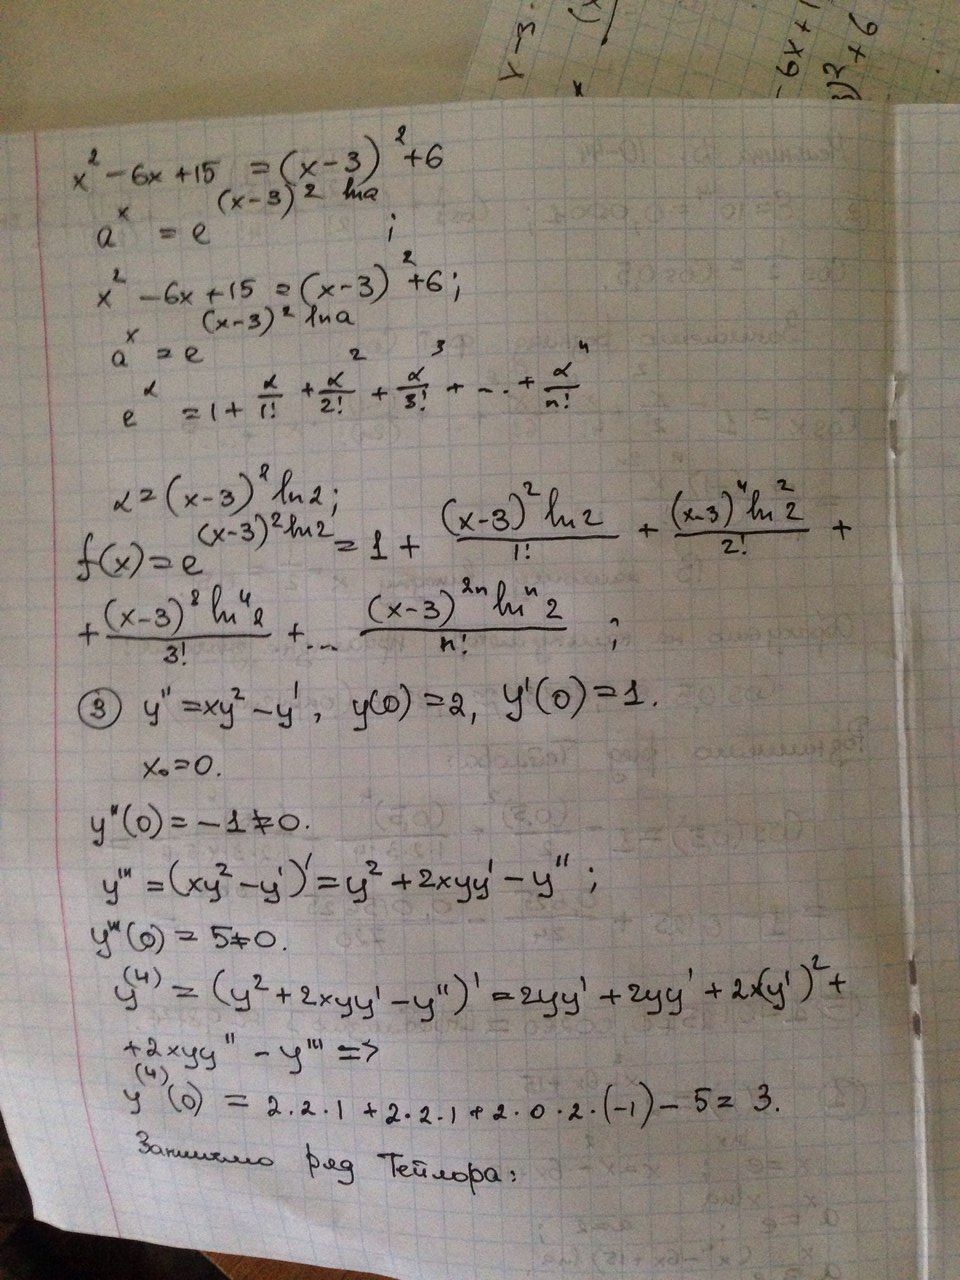 x² - 6x + 15 = (x-3)² + 6
aˣ = e^((x-3)² ln a) ;
x² - 6x + 15 = (x-3)² + 6;
aˣ = e^((x-3)² ln a)
e^α = 1 + α/1! + α²/2! + α³/3! + ... + αⁿ/n!
α = (x-3)² ln 2;
f(x) = e^((x-3)² ln 2) = 1 + (x-3)² ln 2/1! + (x-3)⁴ ln² 2/2! +
+ (x-3)⁸ ln⁴ 2/3! + ... (x-3)²ⁿ lnⁿ 2/n! ;
③ y'' = xy² - y', y(0) = 2, y'(0) = 1.
x₀ = 0.
y''(0) = -1 ≠ 0.
y''' = (xy² - y')' = y² + 2xyy' - y'' ;
y'''(0) = 5 ≠ 0.
y⁽⁴⁾ = (y² + 2xyy' - y'')' = 2yy' + 2yy' + 2x(y')² +
+ 2xyy'' - y''' =>
y⁽⁴⁾(0) = 2·2·1 + 2·2·1 + 2·0·2·(-1) - 5 = 3.
Запишемо ряд Тейлора: